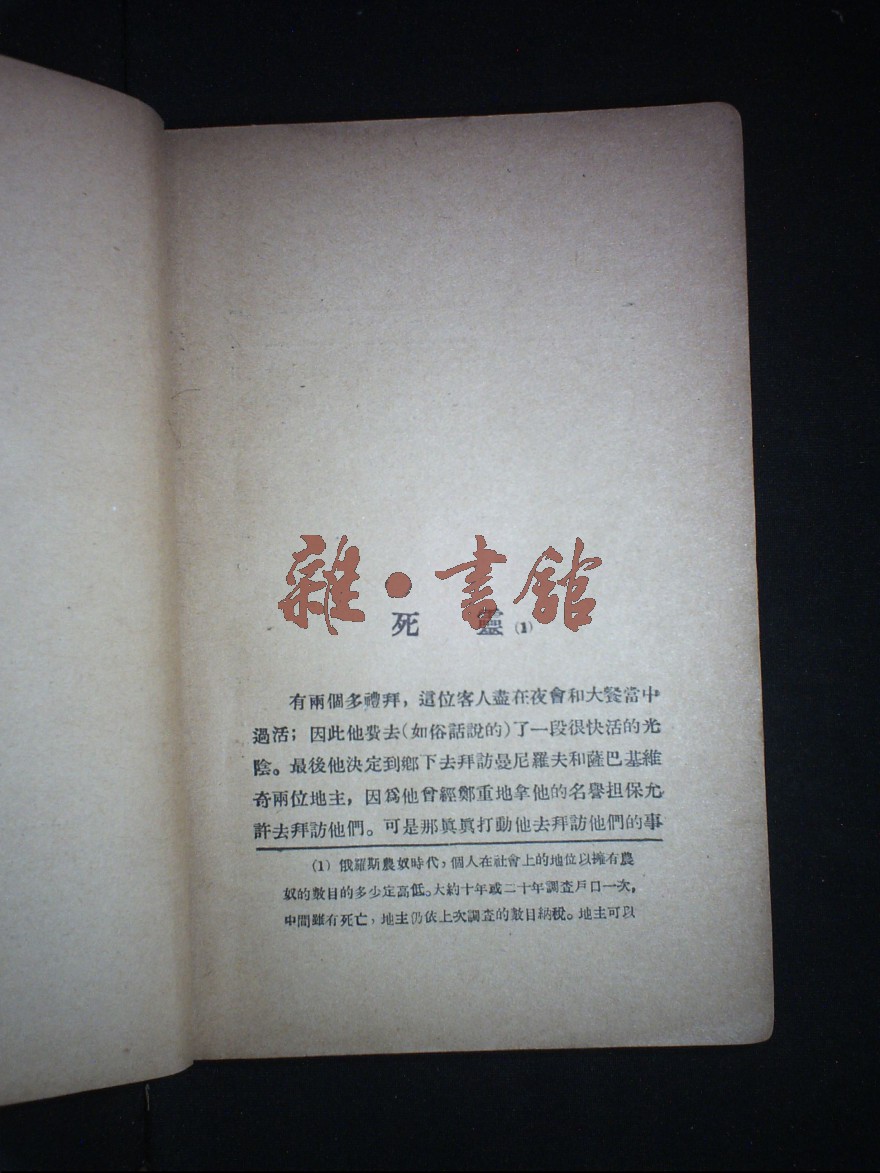 雜·書館
死靈(1)
有兩個多禮拜，這位客人盡在夜會和大餐當中
過活；因此他費去(如俗話說的)了一段很快活的光
陰。最後他決定到鄉下去拜訪曼尼羅夫和薩巴基維
奇兩位地主，因爲他曾經鄭重地拿他的名譽担保允
許去拜訪他們。可是那眞眞打動他去拜訪他們的事
(1) 俄羅斯農奴時代，個人在社會上的地位以擁有農
奴的數目的多少定高低。大約十年或二十年調查戶口一次，
中間雖有死亡，地主仍依上次調查的數目納稅。地主可以